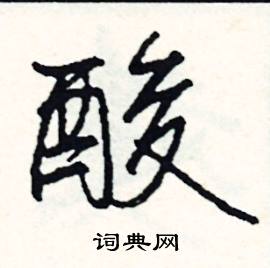 酸
词典网